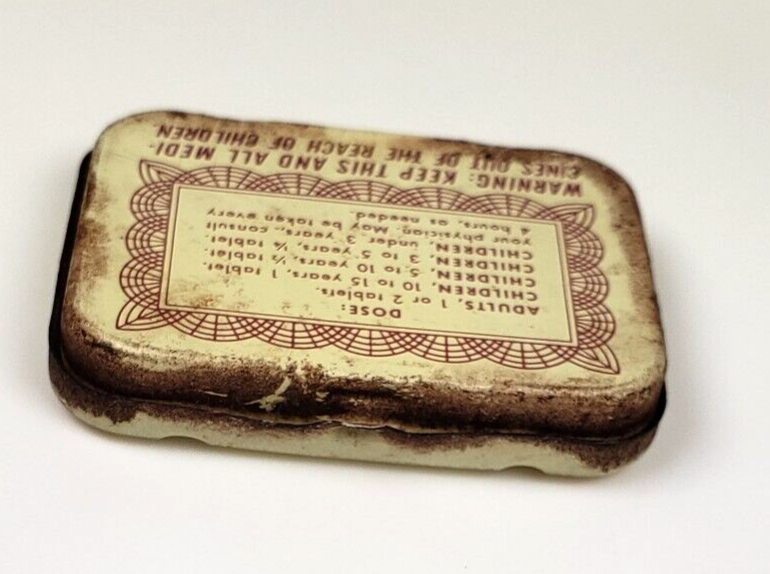 WARNING: KEEP THIS AND ALL MEDI-
CINES OUT OF THE REACH OF CHILDREN.
DOSE:
ADULTS, 1 or 2 tablets.
CHILDREN, 10 to 15 years, 1 tablet.
CHILDREN, 5 to 10 years, ½ tablet.
CHILDREN, 3 to 5 years, ¼ tablet.
CHILDREN, under 3 years, consult
your physician. May be taken every
4 hours, as needed.